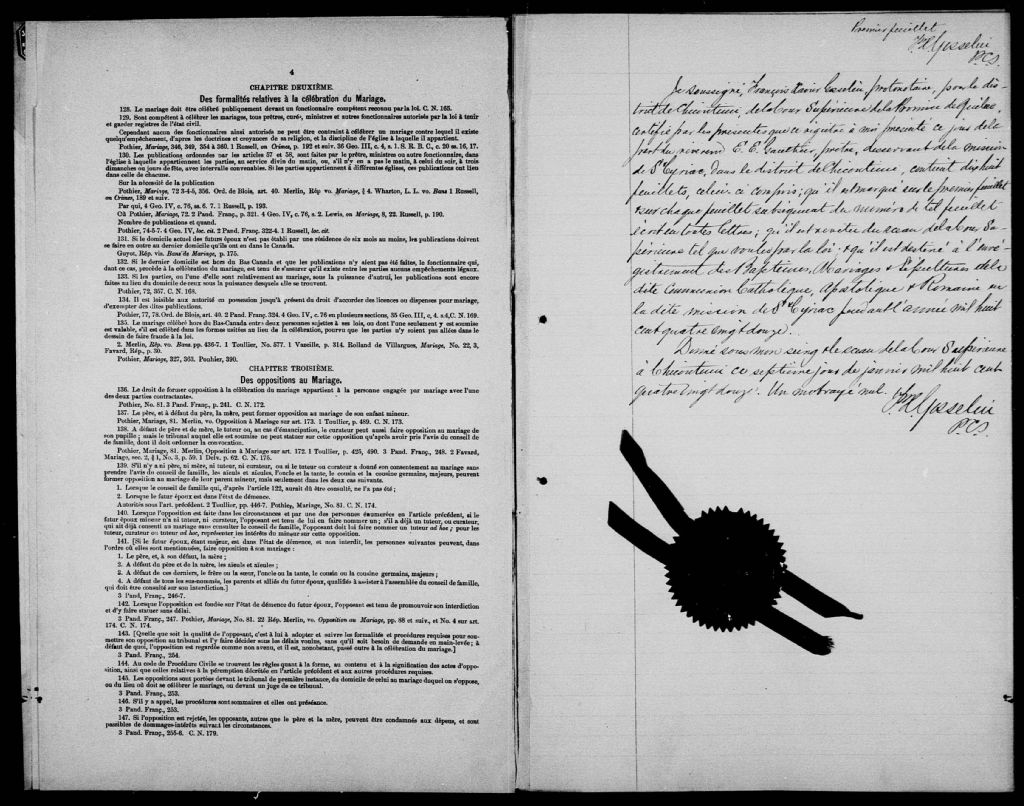 4
CHAPITRE DEUXIÈME.
Des formalités relatives à la célébration du Mariage.
128. Le mariage doit être célébré publiquement devant un fonctionnaire compétent reconnu par la loi. C. N. 165.
129. Sont compétent à célébrer les mariages, tous prêtres, curés, ministres et autres fonctionnaires autorisés par la loi à tenir
et garder registres de l'état civil.
Cependant aucun des fonctionnaires ainsi autorisés ne peut être contraint à célébrer un mariage contre lequel il existe
quelqu'empêchement, d'après les doctrines et croyances de sa religion, et la discipline de l'église à laquelle il appartient.
Pothier, Mariage, 346, 349, 354 à 360. 1 Russell, on Crimes, p. 192 et suiv. 36 Geo. III, c. 4, s. 1. S. R. B. C., c. 20 ss. 16, 17.
130. Les publications ordonnées par les articles 57 et 58, sont faites par le prêtre, ministre ou autre fonctionnaire, dans
l'église à laquelle appartiennent les parties, au service divin du matin, ou, s'il n'y en a pas le matin, à celui du soir, à trois
dimanches ou jours de fête, avec intervalle convenables. Si les parties appartiennent à différentes églises, ces publications ont lieu
dans celle de chacune.
Sur la nécessité de la publication
Pothier, Mariage, 72 3-4-5, 356. Ord. de Blois, art. 40. Merlin, Rép vo. Mariage, § 4. Wharton, L. L. vo. Bans 1 Russell,
on Crimes, 189 et suiv.
Par qui, 4 Geo. IV, c. 76, ss. 6. 7. 1 Russell, p. 193.
Où Pothier, Mariage, 72. 2 Pand. Franç., p. 321. 4 Geo. IV, c. 76, s. 2. Lewis, on Mariage, 8, 22. Russell, p. 190.
Nombre de publications et quand.
Pothier, 74-5-7. 4 Geo. IV, loc. cit. 2 Pand. Franç., 322-4. 1 Russell, loc. cit.
131. Si le domicile actuel des futurs époux n'est pas établi par une résidence de six mois au moins, les publications doivent
se faire en outre au dernier domicile qu'ils ont eu dans le Canada.
Guyot, Rép. vis. Bans de Mariage, p. 175.
132. Si le dernier domicile est hors du Bas Canada et que les publications n'y aient pas été faites, le fonctionnaire qui,
dant ce cas, procède à la célébration du mariage, est tenu de s'assurer qu'il existe entre les parties aucuns empêchements légaux.
133. Si les parties, ou l'une d'elle sont relativement au mariage, sous la puissance d'autrui, les publications sont encore
faites au lieu du domicile de ceux sous la puissance desquels elle se trouvent.
Pothier, 72, 357. C. N. 168.
134. Il est laisible aux autorité en possession jusqu'à présent du droit d'accorder des licences ou dispenses pour mariage,
d'exempter des dites publications.
Pothier, 77, 78. Ord. de Blois, art. 40. 2 Pand Franç. 324. 4 Geo. IV, c. 76 en plusieurs sections, 35 Geo. III, c, 4. s.4, C. N. 169.
135. Le mariage célébré hors du Bas-Canada entre deux personnes sujettes à ses lois, ou dont l'une seulement y est soumise
est valable, s'il est célébré dans les formes usitées au lieu de la célébration, pourvu que les parties n'y soient pas allées dans le
dessein de faire fraude à la loi.
2. Merlin, Rép. vo. Bans. pp. 436-7. 1 Toullier, No. 577. 1 Vazeille, p. 314. Rolland de Villargues, Mariage, No. 22, 3,
Favard, Rép., p. 30.
Pothier, Mariage, 327, 363. Pouhier, 390.
CHAPITRE TROISIÈME.
Des oppositions au Mariage.
136. Le droit de former opposition à la célébration du mariage appartient à la personne engagée par mariage avec l'une
des deux parties contractantes.
Pothier, No. 81. 3 Pand Franç., p. 241. C. N. 172.
137. Le père, et à défaut du père, la mère, peut former opposition au mariage de son enfant mineur.
Pothier, Mariage, 81. Merlin, vo. Opposition à Mariage sur art. 173. 1 Toullier, p. 489. C. N. 173.
138. A défaut de père et de mère, le tuteur ou, au cas d'émancipation, le curateur peut aussi faire opposition au mariage de
son pupille; mais le tribunal auquel elle est soumise ne peut statuer sur cette opposition qu'après avoir pris l'avis du conseil de
de famille, dont il doit ordonner la convocation.
Pothier, Mariage, 81. Merlin, Opposition à Mariage sur art. 172. 1 Toullier, p. 425, 490. 3 Pand. Franç., 248. 2 Favard,
Mariage, sec. 2, § 1, No. 3, p. 59. 1 Delv. p. 62. C. N. 175.
139. S'il n'y a ni père, ni mère, ni tuteur, ni curateur, ou si le tuteur ou curateur a donné son consentement au mariage sans
prendre l'avis du conseil de famille, les aïeuls et aïeules, l'oncle et la tante, le cousin et la cousine germains, majeurs, peuvent
former opposition au mariage de leur parent mineur, mais seulement dans les deux cas suivants.
1. Lorsque le conseil de famille qui, d'après l'article 122, aurait dû être consulté, ne l'a pas été;
2. Lorsque le futur époux est dans l'état de démence.
Autorités sous l'art. précédent. 2 Toullier, pp. 446-7. Pothier, Mariage, No. 81. C. N. 174.
140. Lorsque l'opposition est faite dans les circonstances et par une des personnes énumérées en l'article précédent, si le
futur époux mineur n'a ni tuteur, ni curateur, l'opposant est tenu de lui en faire nommer un; s'il a déjà un tuteur, ou curateur,
qui ait déjà consenti au mariage sans consulter le conseil de famille, l'opposant doit lui faire nommer un tuteur ad hoc; pour les
tuteur, curateur ou tuteur ad hoc, représenter les intérêts du mineur sur cette opposition.
141. [Si le futur époux, étant majeur, est dans l'état de démence, et non interdit, les personnes suivantes peuvent, dans
l'ordre où elles sont mentionnées, faire opposition à son mariage:
1. Le père, et, à son défaut, la mère;
2. A défaut du père et de la mère, les aïeuls et aïeules;
3. A défaut de ces derniers, le frère ou la sœur, l'oncle ou la tante, le cousin ou la cousine germains, majeurs;
4. A défaut de tous les sus-nommés, les parents et alliés du futur époux, qualifiés à assister à l'assemblée du conseil de famille,
qui doit être consulté sur son interdiction.]
3 Pand, Franç., 246-7.
142. Lorsque l'opposition est fondée sur l'état de démence du futur époux, l'opposant est tenu de promouvoir son interdiction
et d'y faire statuer sans délai.
3 Pand. Franç., 247. Pothier, Mariage, No. 81. 22 Rép. Merlin, vo. Opposition au Mariage, pp. 88 et suiv., et No. 4 sur art.
174. C. N. 174.
143. [Quelle que soit la qualité de l'opposant, c'est à lui à adopter et suivre les formalités et procédures requises pour sou-
mettre son opposition au tribunal et l'y faire décider sous les délais voulus, sans qu'il soit besoin de demande en main-levée; à
défaut de quoi, l'opposition est regardée comme non avenu, et il est, nonobstant, passé outre à la célébration du mariage.]
3 Pand. Franç., 254.
144. Au code de Procédure Civile se trouvent les règles quant à la forme, au contenu et à la signification des actes d'oppo-
sition, ainsi que celles relatives à la péremption décrétée en l'article précédent et aux autres procédures requises.
145. Les oppositions sont portées devant le tribunal de première instance, du domicile de celui au mariage duquel on s'oppose,
ou du lieu où doit se célébrer le mariage, ou devant un juge de ce tribunal.
3 Pand. Franç., 253.
146. S'il y a appel, les procédures sont sommaires et elles ont préséance.
3 Pand. Franç., 253.
147. Si l'opposition est rejetée, les opposants, autres que le père et la mère, peuvent être condamnés aux dépens, et sont
passibles de dommages-intérêts suivant les circonstances.
3 Pand. Franç., 255-6. C. N. 179.
Premier feuillet
F. X. Gosselin
P.C.S.
Je soussigné, François Xavier Gosselin, protonotaire, pour le dis-
trict de Chicoutimi, de la Cour Supérieure de la Province de Québec,
certifie par les présentes que ce registre à moi présenté ce jour de la
part du révérend E. E. Gauthier, prêtre, desservant de la mission
de St Cyriac, dans le district de Chicoutimi, contient dix huit
feuillets, celui ci compris; qu'il est marqué sur le premier feuillet
& sur chaque feuillet subséquent du numéro de tel feuillet
écrit en toutes lettres; qu'il est revêtu du sceau de la Cour Su-
périeure tel que voulu par la loi; & qu'il est destiné à l'enre-
gistrement des Baptêmes, Mariages & Sépultures de la
dite Communion Catholique, Apostolique & Romaine en
la dite mission de St Cyriac pendant l'année mil huit
cent quatre vingt douze.
Donné sous mon seing & le sceau de la Cour Supérieure
à Chicoutimi ce septième jour de janvier mil huit cent
quatre vingt douze. Un mot rayé nul.
F. X. Gosselin
P.C.S.